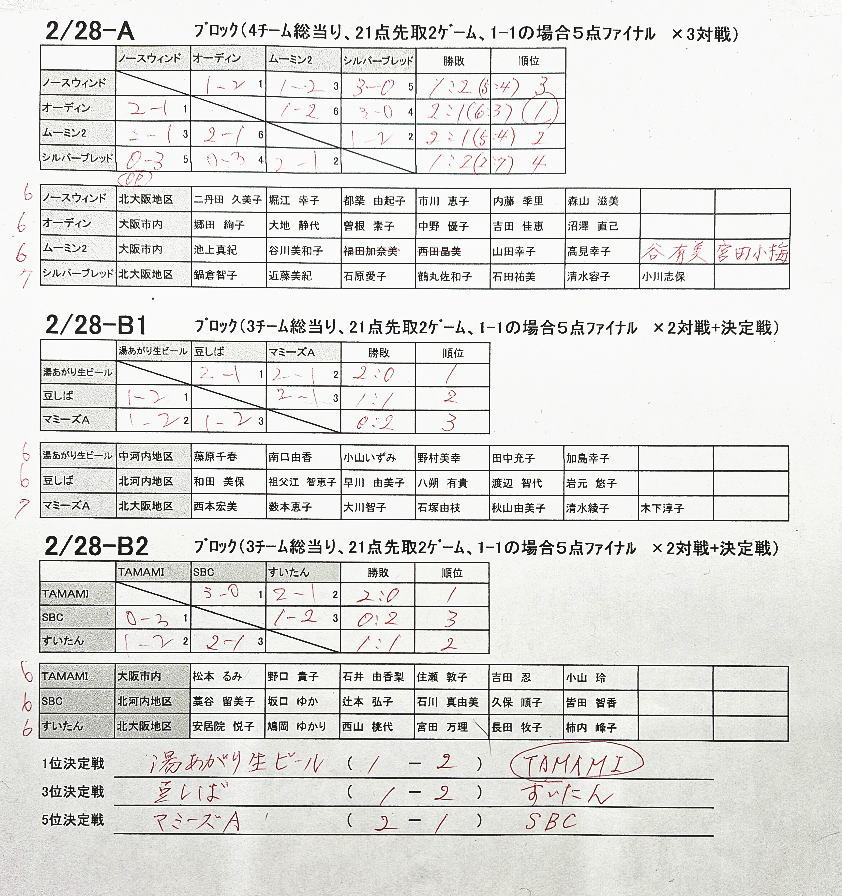 2/28-A ブロック(4チーム総当り、21点先取2ゲーム、1-1の場合5点ファイナル ×3対戦)
ノースウィンド オーディン ムーミン2 シルバーブレッド 勝敗 順位
ノースウィンド 1-2 1 1-2 3 3-0 5 1:2(5:4) 3
オーディン 2-1 1 1-2 6 3-0 4 2:1(6:3) 1
ムーミン2 2-1 3 2-1 6 1-2 2 2:1(5:4) 2
シルバーブレッド 0-3 5 0-3 4 2-1 2 1:2(2:7) 4
6 ノースウィンド 北大阪地区 二丹田 久美子 堀江 幸子 都築 由起子 市川 恵子 内藤 季里 森山 滋美
6 オーディン 大阪市内 郷田 絢子 大地 静代 曽根 素子 中野 優子 吉田 佳恵 沼澤 直己
6 ムーミン2 大阪市内 池上真紀 谷川美和子 福田加奈美 西田晶美 山田幸子 高見幸子 谷 有美 宮田小梅
7 シルバーブレッド 北大阪地区 鍋倉智子 近藤美紀 石原愛子 鶴丸佐和子 石田祐美 清水容子 小川志保
2/28-B1 ブロック(3チーム総当り、21点先取2ゲーム、1-1の場合5点ファイナル ×2対戦+決定戦)
湯あがり生ビール 豆しば マミーズA 勝敗 順位
湯あがり生ビール 2-1 1 2-1 2 2:0 1
豆しば 1-2 1 2-1 3 1:1 2
マミーズA 1-2 2 1-2 3 0:2 3
6 湯あがり生ビール 中河内地区 藤原千春 南口由香 小山いずみ 野村美幸 田中充子 加島幸子
6 豆しば 北河内地区 和田 美保 祖父江 智恵子 早川 由美子 八朔 有貴 渡辺 智代 岩元 悠子
7 マミーズA 北大阪地区 西本宏美 数本恵子 大川智子 石塚由枝 秋山由美子 清水綾子 木下淳子
2/28-B2 ブロック(3チーム総当り、21点先取2ゲーム、1-1の場合5点ファイナル ×2対戦+決定戦)
TAMAMI SBC すいたん 勝敗 順位
TAMAMI 3-0 1 2-1 2 2:0 1
SBC 0-3 1 1-2 3 0:2 3
すいたん 1-2 2 2-1 3 1:1 2
6 TAMAMI 大阪市内 松本 るみ 野口 貴子 石井 由香梨 住瀬 敦子 吉田 忍 小山 玲
6 SBC 北河内地区 藁谷 留美子 坂口 ゆか 辻本 弘子 石川 真由美 久保 順子 皆田 智香
6 すいたん 北大阪地区 安居院 悦子 鳩岡 ゆかり 西山 桃代 宮田 万理 長田 牧子 柿内 峰子
1位決定戦 湯あがり生ビール ( 1 - 2 ) TAMAMI
3位決定戦 豆しば ( 1 - 2 ) すいたん
5位決定戦 マミーズA ( 2 - 1 ) SBC